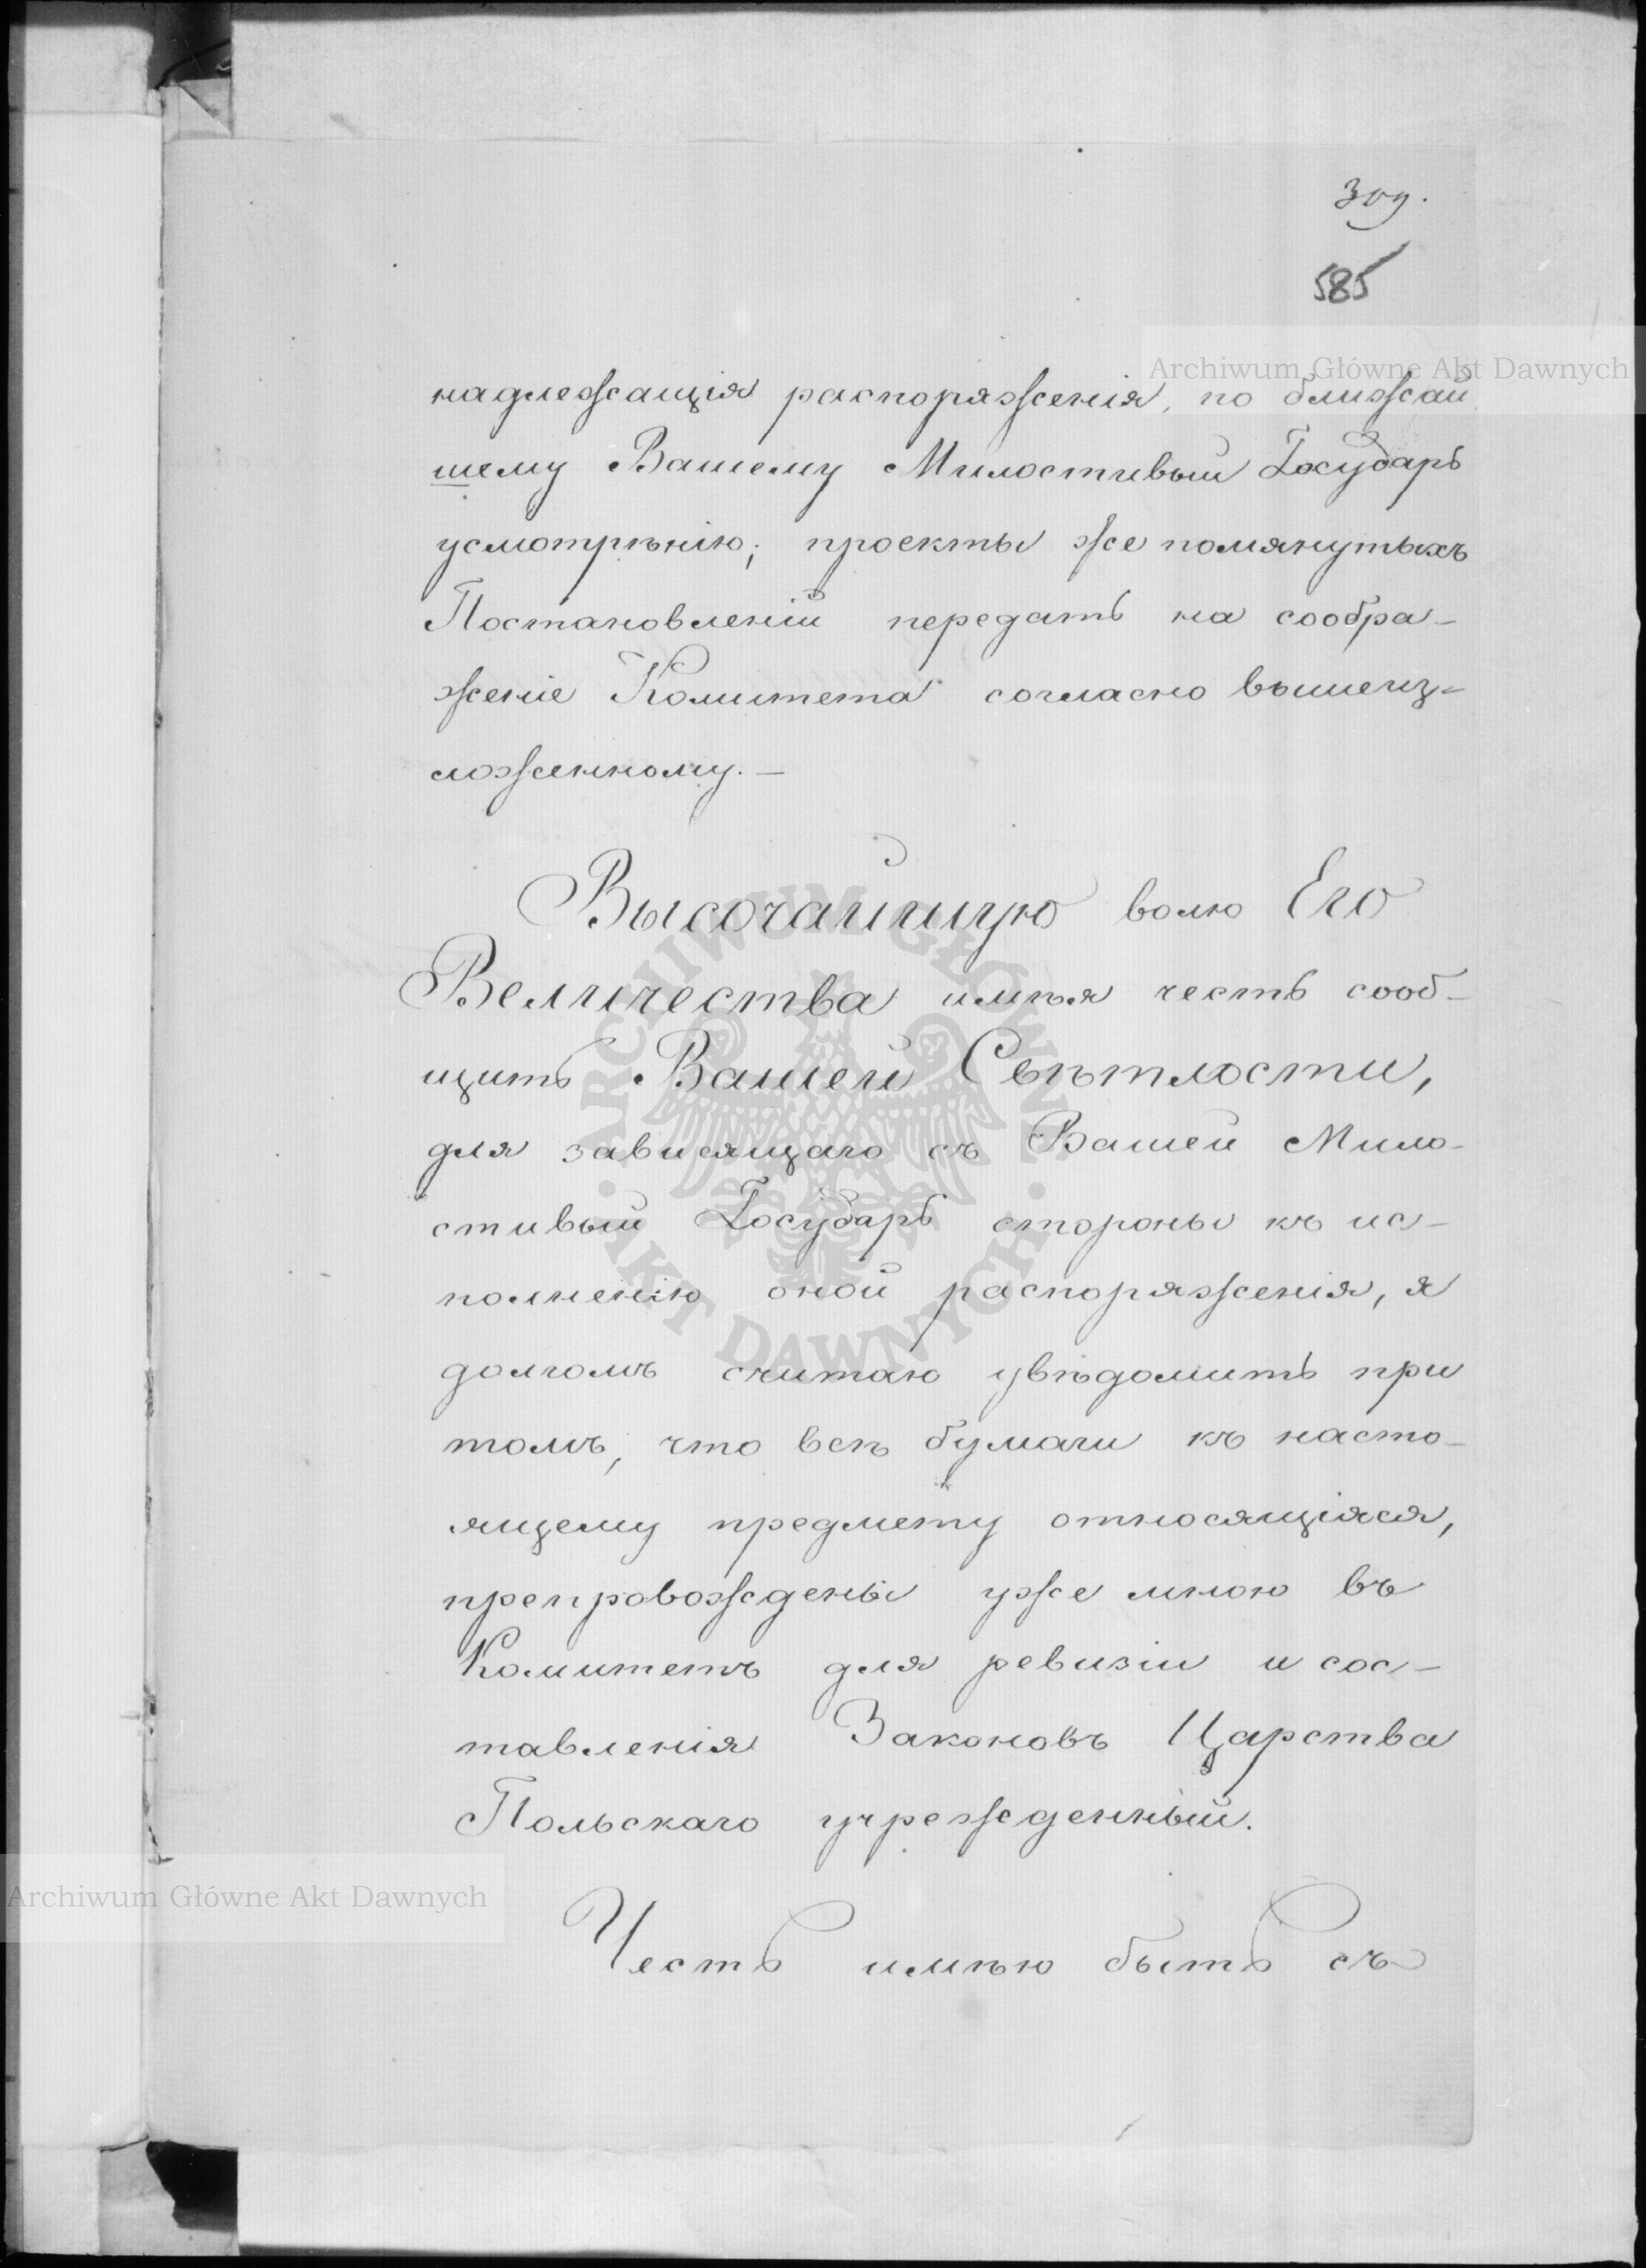 309.
585
Archiwum Główne Akt Dawnych
надлежащія распоряженія, по ближай
шему Вашему Милостивый Государь
усмотрѣнію; проекты же помянутыхъ
Постановленій передать на сообра-
женіе Комитета согласно вышеиз-
ложенному.-
Высочайшую волю Его
Величества имѣя честь сооб-
щить Вашей Свѣтлости,
для зависящаго съ Вашей Мило-
стивый Государь стороны къ ис-
полненію оной распоряженія, я
долгомъ считаю увѣдомить при
томъ, что всѣ бумаги къ насто-
ящему предмету относящіяся,
препровождены уже мною въ
Комитетъ для ревизіи и сос-
тавленія Законовъ Царства
Польскаго учрежденный.
Честь имѣю быть съ
ARCHIWUM GŁÓWNE AKT DAWNYCH
Archiwum Główne Akt Dawnych